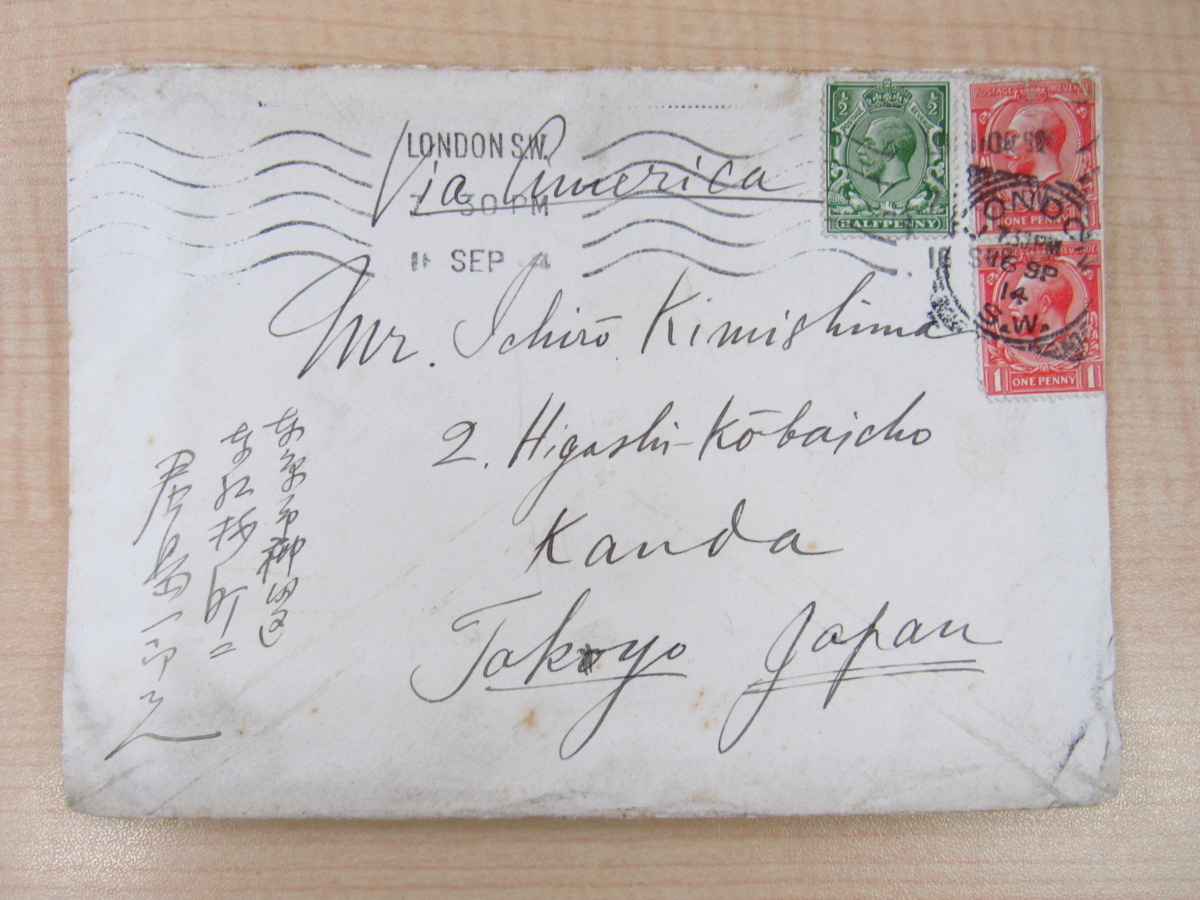 LONDON S.W.
30 PM
SEP
Via America
½ ½
HALFPENNY
POSTAGE REVENUE
ONE PENNY 1
LONDON
7.30 PM
16 SP
14
S.W.
1 ONE PENNY 1
Mr. Ichirō Kimishima
2. Higashi-Kōbaicho
Kanda
Tokyo Japan
東京市神田区
東紅梅町二
君島一郎